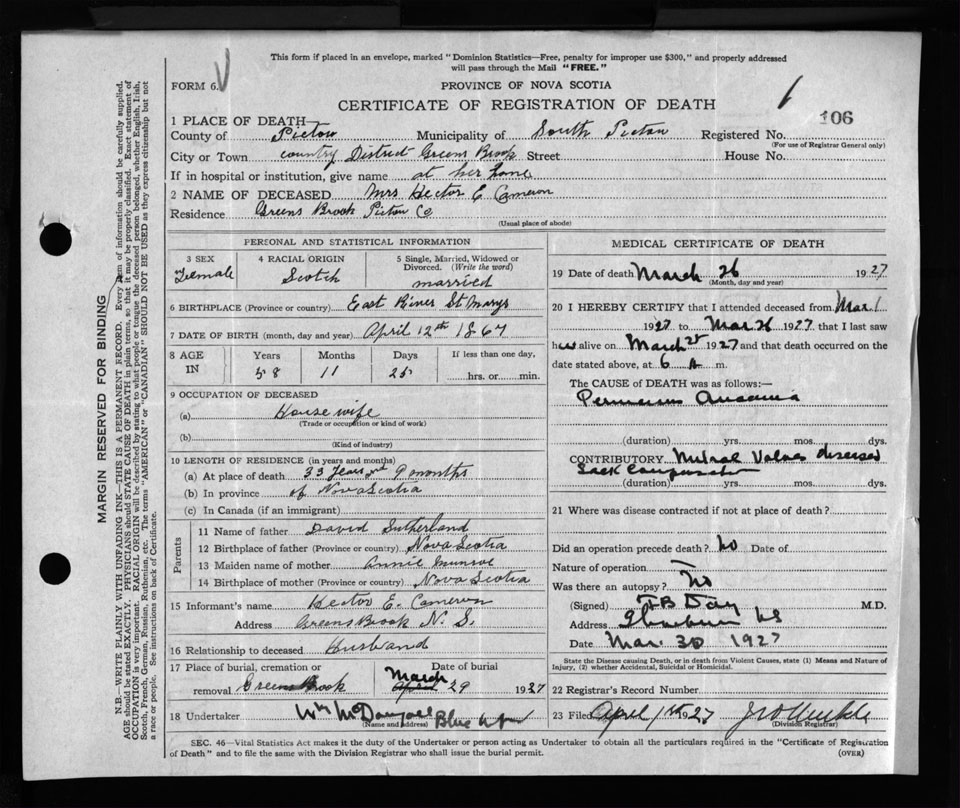 This form if placed in an envelope, marked "Dominion Statistics—Free, penalty for improper use $300," and properly addressed
will pass through the Mail "FREE."
FORM 6.
PROVINCE OF NOVA SCOTIA
CERTIFICATE OF REGISTRATION OF DEATH
106
1 PLACE OF DEATH
County of Pictou Municipality of South Pictou Registered No.
(For use of Registrar General only)
City or Town country District Greens Brook Street House No.
If in hospital or institution, give name at her home
2 NAME OF DECEASED Mrs Hector E Cameron
Residence Greens Brook Pictou Co
(Usual place of abode)
PERSONAL AND STATISTICAL INFORMATION
3 SEX 4 RACIAL ORIGIN 5 Single, Married, Widowed or
Divorced. (Write the word)
Female Scotch married
6 BIRTHPLACE (Province or country) East River St Marys
7 DATE OF BIRTH (month, day and year) April 12th 1867
8 AGE IN Years Months Days If less than one day,
58 11 25 hrs. or min.
9 OCCUPATION OF DECEASED
(a) House wife
(Trade or occupation or kind of work)
(b)
(Kind of industry)
10 LENGTH OF RESIDENCE (in years and months)
(a) At place of death 33 Years and 9 months
(b) In province of Nova Scotia
(c) In Canada (if an immigrant)
Parents
11 Name of father David Sutherland
12 Birthplace of father (Province or country) Nova Scotia
13 Maiden name of mother Annie Munroe
14 Birthplace of mother (Province or country) Nova Scotia
15 Informant's name Hector E. Cameron
Address Greens Brook N. S.
16 Relationship to deceased Husband
17 Place of burial, cremation or Date of burial
removal Greens Brook March 29 1927
18 Undertaker Wm McDougall Blue
(Name and address)
MEDICAL CERTIFICATE OF DEATH
19 Date of death March 26 1927
(Month, day and year)
20 I HEREBY CERTIFY that I attended deceased from Mar 1
1927 to Mar 26 1927 that I last saw
her alive on March 25 1927 and that death occurred on the
date stated above, at 6 A m.
The CAUSE OF DEATH was as follows:—
Pernicious Anaemia
(duration) yrs. mos. dys.
CONTRIBUTORY Mitral Valves diseased
Lack Compensation
(duration) yrs. mos. dys.
21 Where was disease contracted if not at place of death?
Did an operation precede death? No Date of
Nature of operation
Was there an autopsy? No
(Signed) Day M.D.
Address NS
Date Mar. 30 1927
State the Disease causing Death, or in death from Violent Causes, state (1) Means and Nature of
Injury, (2) whether Accidental, Suicidal or Homicidal.
22 Registrar's Record Number
23 Filed April 1st 1927
(Division Registrar)
SEC. 46—Vital Statistics Act makes it the duty of the Undertaker or person acting as Undertaker to obtain all the particulars required in the "Certificate of Registration
of Death" and to file the same with the Division Registrar who shall issue the burial permit. (OVER)
MARGIN RESERVED FOR BINDING
N.B.—WRITE PLAINLY, WITH UNFADING INK—THIS IS A PERMANENT RECORD. Every item of information should be carefully supplied.
AGE should be stated EXACTLY. PHYSICIANS should STATE CAUSE OF DEATH in plain terms, so that it may be properly classified. Exact statement of
OCCUPATION is very important. RACIAL ORIGIN will be described by stating to what people or tongue the deceased person belonged, whether English, Irish,
Scotch, French, German, Russian, Ruthenian, etc. The terms "AMERICAN" or "CANADIAN" SHOULD NOT BE USED as they express citizenship but not
a race or people. See instructions on back of Certificate.